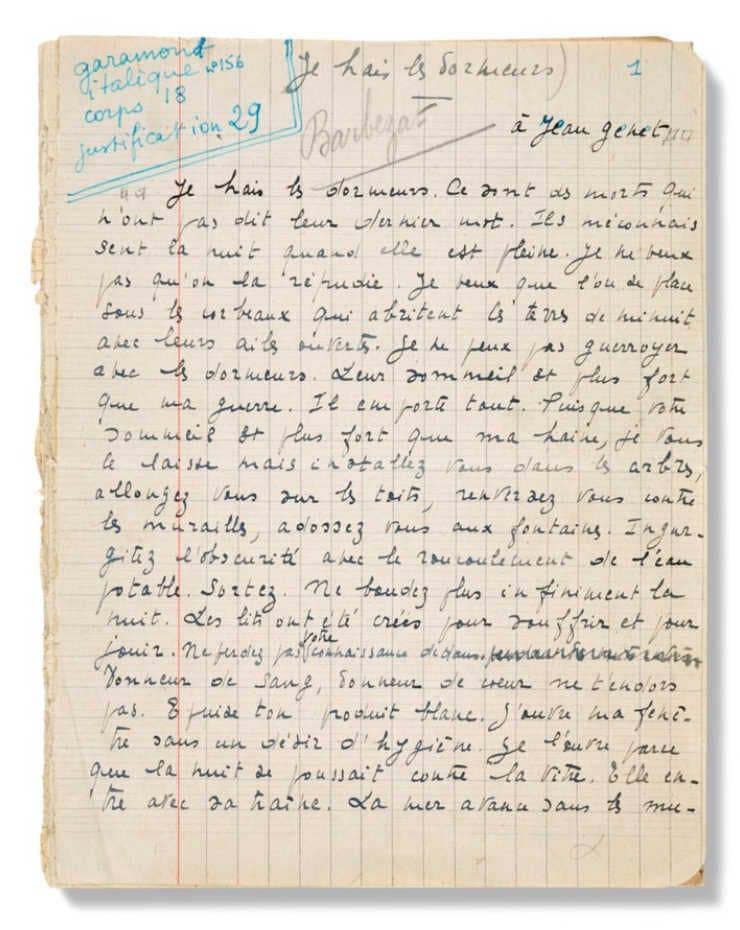 garamond
italique n°156
corps 18
justification 29
Je hais les dormeurs)
1
Barbezat
à Jean Genet
Je hais les dormeurs. Ce sont des morts qui
n'ont pas dit leur dernier mot. Ils méconnais
sent la nuit quand elle est pleine. Je ne veux
pas qu'on la répudie. Je veux que l'on se place
sous les corbeaux qui abritent les terres de minuit
avec leurs ailes ouvertes. Je ne peux pas guerroyer
avec les dormeurs. Leur sommeil est plus fort
que ma guerre. Il emporte tout. Puisque votre
sommeil est plus fort que ma haine, je vous
le laisse mais installez vous dans les arbres,
allongez vous sur les toits, renversez vous contre
les murailles, adossez vous aux fontaines. Ingur-
gitez l'obscurité avec le roucoulement de l'eau
potable. Sortez. Ne boudez plus infiniment la
nuit. Les lits ont été créés pour souffrir et pour
jouir. Ne perdez pas votre connaissance dedans.
Donneur de sang, donneur de cœur ne t'endors
pas. Epuise ton produit blanc. J'ouvre ma fenê-
tre sans un désir d'hygiène. Je l'ouvre parce
que la nuit se poussait contre la vitre. Elle en-
tre avec sa traîne. La mer avance dans les mu-